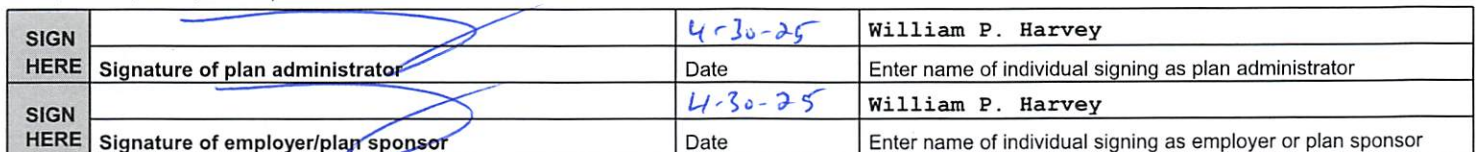 SIGN HERE 4-30-25 William P. Harvey
Signature of plan administrator Date Enter name of individual signing as plan administrator
SIGN HERE 4-30-25 William P. Harvey
Signature of employer/plan sponsor Date Enter name of individual signing as employer or plan sponsor